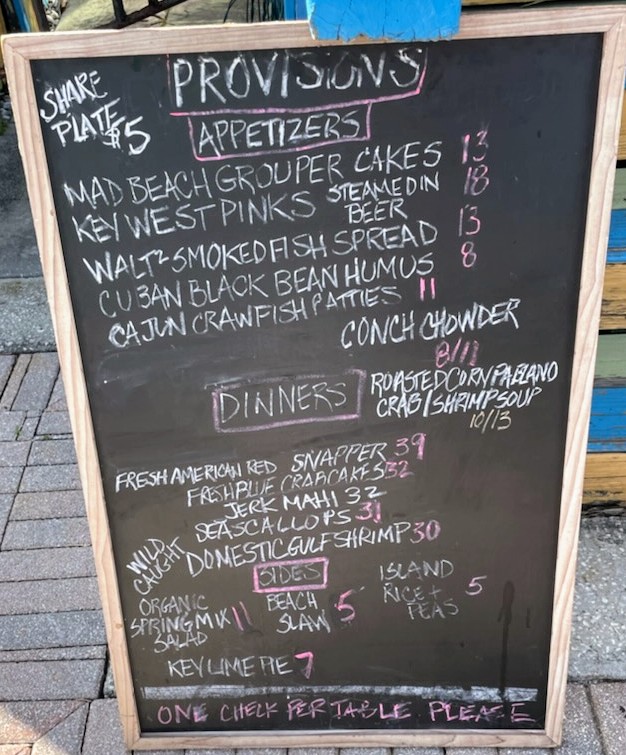 PROVISIONS
SHARE
PLATE $5
APPETIZERS
MAD BEACH GROUPER CAKES 13
KEY WEST PINKS STEAMED IN BEER 18
WALT'S SMOKED FISH SPREAD 13
CUBAN BLACK BEAN HUMUS 8
CAJUN CRAWFISH PATTIES 11
CONCH CHOWDER
8/11
ROASTED CORN PABLANO
CRAB/SHRIMP SOUP
10/13
DINNERS
FRESH AMERICAN RED SNAPPER 39
FRESH BLUE CRABCAKES 32
JERK MAHI 32
SEASCALLOPS 31
WILD
CAUGHT
DOMESTIC GULF SHRIMP 30
SIDES
ORGANIC
SPRING MIX 11
SALAD
BEACH
SLAW 5
ISLAND
RICE + 5
PEAS
KEY LIME PIE 7
ONE CHECK PER TABLE PLEASE